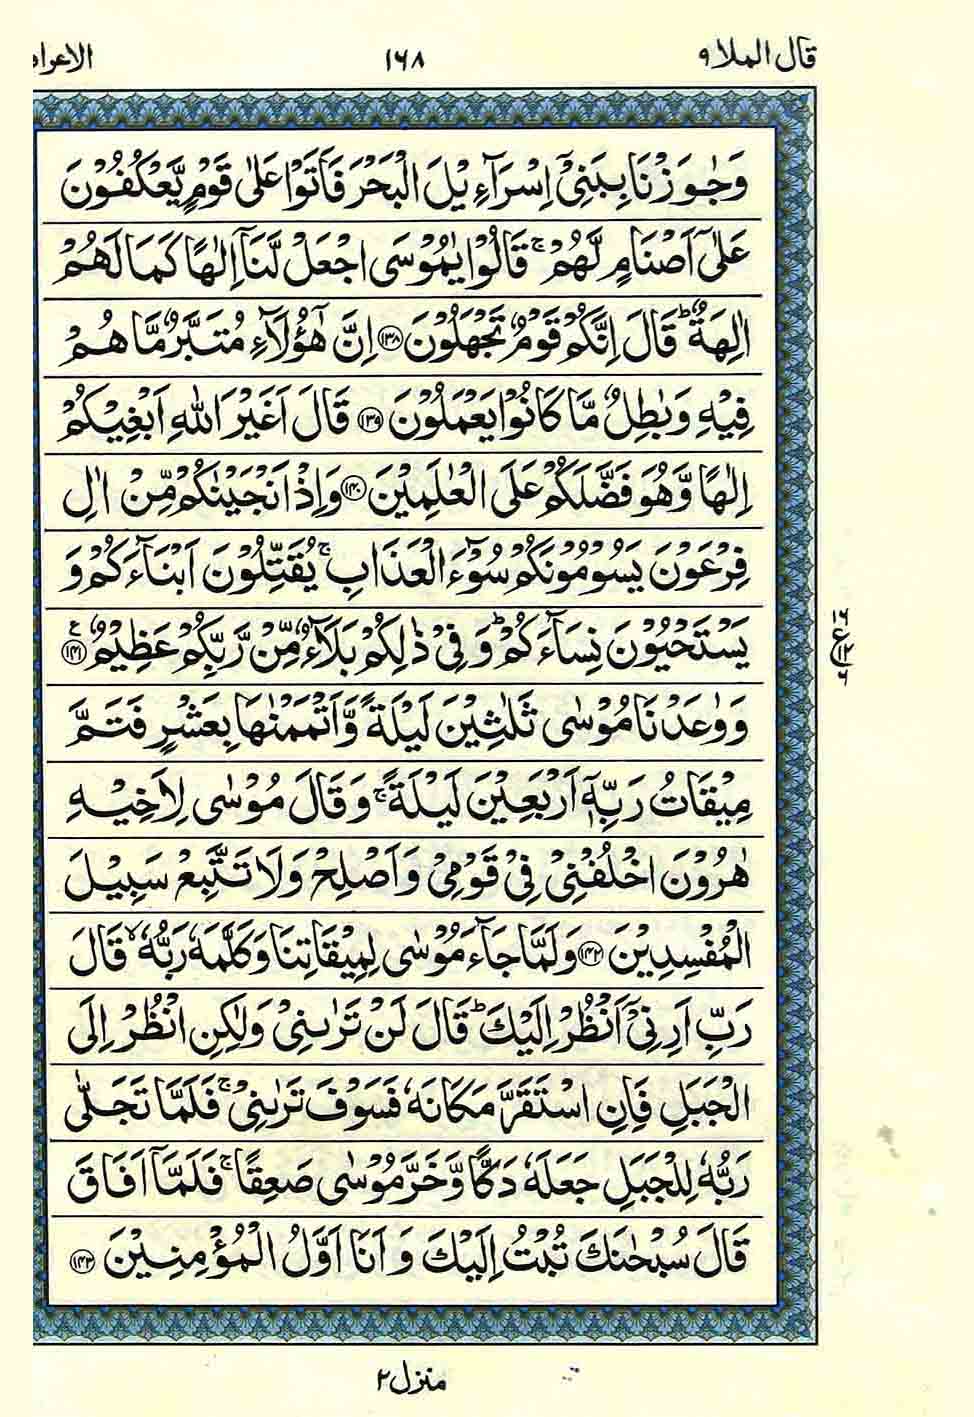 قال الملا ٩
١٦٨
الاعراف
وَجٰوَزْنَا بِبَنِیْۤ اِسْرَآءِیْلَ الْبَحْرَ فَاَتَوْا عَلٰی قَوْمٍ یَّعْكُفُوْنَ
عَلٰۤی اَصْنَامٍ لَّهُمْ ۚ قَالُوْا یٰمُوْسَی اجْعَلْ لَّنَاۤ اِلٰهًا كَمَا لَهُمْ
اٰلِهَةٌ ؕ قَالَ اِنَّكُمْ قَوْمٌ تَجْهَلُوْنَ ﴿۱۳۸﴾ اِنَّ هٰۤؤُلَآءِ مُتَبَّرٌ مَّا هُمْ
فِیْهِ وَبٰطِلٌ مَّا كَانُوْا یَعْمَلُوْنَ ﴿۱۳۹﴾ قَالَ اَغَیْرَ اللّٰهِ اَبْغِیْكُمْ
اِلٰهًا وَّهُوَ فَضَّلَكُمْ عَلَی الْعٰلَمِیْنَ ﴿۱۴۰﴾ وَاِذْ اَنْجَیْنٰكُمْ مِّنْ اٰلِ
فِرْعَوْنَ یَسُوْمُوْنَكُمْ سُوْٓءَ الْعَذَابِ ۚ یُقَتِّلُوْنَ اَبْنَآءَكُمْ وَ
یَسْتَحْیُوْنَ نِسَآءَكُمْ ؕ وَفِیْ ذٰلِكُمْ بَلَآءٌ مِّنْ رَّبِّكُمْ عَظِیْمٌ ﴿۱۴۱﴾ ع
وَوٰعَدْنَا مُوْسٰی ثَلٰثِیْنَ لَیْلَةً وَّاَتْمَمْنٰهَا بِعَشْرٍ فَتَمَّ
مِیْقَاتُ رَبِّهٖۤ اَرْبَعِیْنَ لَیْلَةً ۚ وَقَالَ مُوْسٰی لِاَخِیْهِ
هٰرُوْنَ اخْلُفْنِیْ فِیْ قَوْمِیْ وَاَصْلِحْ وَلَا تَتَّبِعْ سَبِیْلَ
الْمُفْسِدِیْنَ ﴿۱۴۲﴾ وَلَمَّا جَآءَ مُوْسٰی لِمِیْقَاتِنَا وَكَلَّمَهٗ رَبُّهٗ ۙ قَالَ
رَبِّ اَرِنِیْۤ اَنْظُرْ اِلَیْكَ ؕ قَالَ لَنْ تَرٰىنِیْ وَلٰكِنِ انْظُرْ اِلَی
الْجَبَلِ فَاِنِ اسْتَقَرَّ مَكَانَهٗ فَسَوْفَ تَرٰىنِیْ ۚ فَلَمَّا تَجَلّٰی
رَبُّهٗ لِلْجَبَلِ جَعَلَهٗ دَكًّا وَّخَرَّ مُوْسٰی صَعِقًا ۚ فَلَمَّاۤ اَفَاقَ
قَالَ سُبْحٰنَكَ تُبْتُ اِلَیْكَ وَاَنَا اَوَّلُ الْمُؤْمِنِیْنَ ﴿۱۴۳﴾
ع
۱۲
۶
منزل ٢